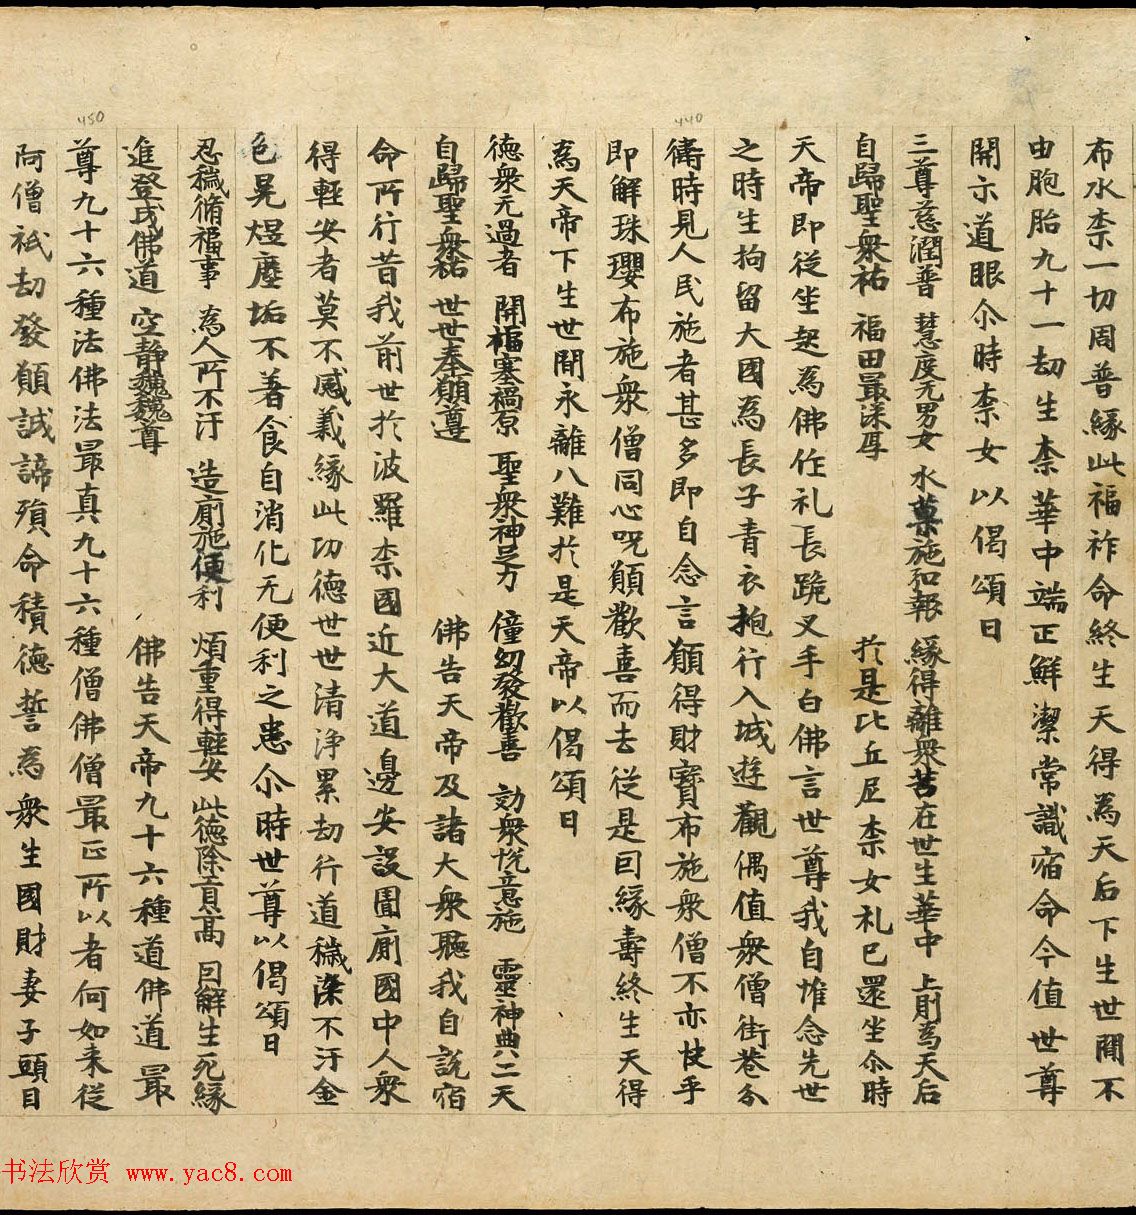 布水柰一切周普緣此福祚命終生天得為天后下生世間不
由胞胎九十一劫生柰華中端正鮮潔常識宿命今值世尊
開示道眼尒時柰女以偈頌曰
三尊慈潤普 慧度无男女 水菓施和報 緣得離衆苦 在世生華中 上則為天后
自歸聖衆祐 福田最深厚 於是比丘尼柰女礼已還坐尒時
天帝即從坐起為佛作礼長跪叉手白佛言世尊我自惟念先世
之時生拘留大國為長子青衣抱行入城遊觀偶值衆僧街巷分
衛時見人民施者甚多即自念言願得財寶布施衆僧不亦快乎
即解珠瓔布施衆僧同心呪願歡喜而去從是因緣壽終生天得
為天帝下生世間永離八難於是天帝以偈頌曰
德衆无過者 開福塞禍原 聖衆神足力 僮幼發歡喜 効衆悅意施 靈神典二天
自歸聖衆祐 世世奉願尊 佛告天帝及諸大衆聽我自說宿
命所行昔我前世於波羅柰國近大道邊安設圊廁國中人衆
得輕安者莫不感義緣此功德世世清淨累劫行道穢染不汙金
色晃煜塵垢不著食自消化无便利之患尒時世尊以偈頌曰
忍穢脩福事 為人所不汙 造廁施便利 煩重得輕安 此德除貢高 因解生死緣
進登成佛道 空靜巍巍尊 佛告天帝九十六種道佛道最
尊九十六種法佛法最真九十六種僧佛僧最正所以者何如来從
阿僧祇劫發願誠諦殞命積德誓為衆生國財妻子頭目
440
450
书法欣赏 www.yac8.com